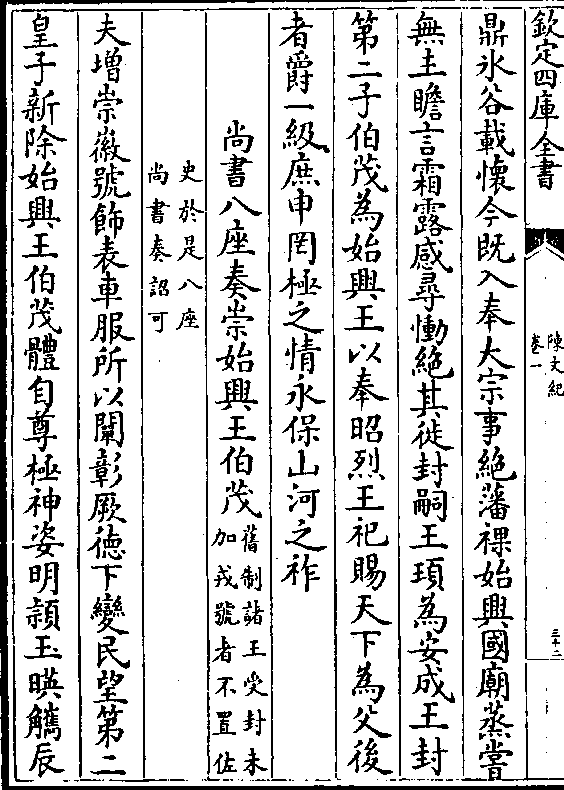 欽定四庫全書
陳文紀
卷一
三十二
鼎氷谷載懷今既入奉大宗事絕藩祼始興國廟蒸嘗
無主瞻言霜露感尋慟絕其徙封嗣王頊為安成王封
第二子伯茂為始興王以奉昭烈王祀賜天下為父後
者爵一級庶申罔極之情永保山河之祚
尚書八座奏崇始興王伯茂
舊制諸王受封未
加戎號者不置佐
史於是八座
尚書奏詔可
夫增崇徽號飾表車服所以闡彰厥徳下變民望第二
皇子新除始興王伯茂體自尊極神姿明頴玉暎觿辰